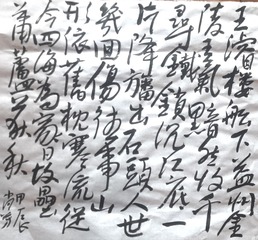 王濬樓船下益州金
陵王氣黯然收千
尋鐵鎖沉江底一
片降旛出石頭人世
幾回傷往事山
形依舊枕寒流從
今四海為家日故壘
蕭蕭蘆荻秋
甲辰